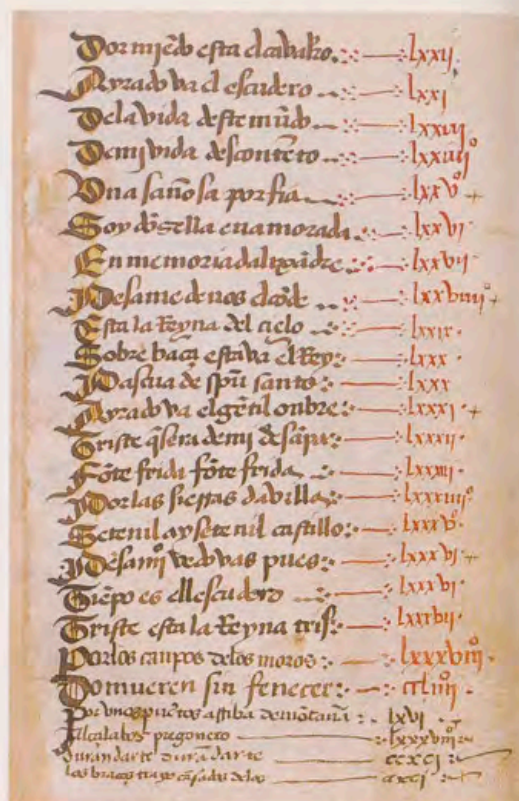 Dormiẽdo esta el cavallero · lxxij
Ayrado va el escudero · lxxj
De la vida deste mũdo · lxxiij
De mi vida descontẽto · lxxiiijº
Una sañosa porfia · lxxvº +
Soy dõsella enamorada · lxxvj
En memoria dalixãdre · lxxvij
Pesame de vos el cõde · lxxviijº +
Esta la Reyna del cielo · lxxix
Sobre baça estava el Rey · lxxx
Pascua de spũ santo · lxxx
Ayrado va el gẽtil onbre · lxxxj +
Triste q̃ sera de mi · lxxxij
Fõte frida fõte frida · lxxxiij
Por las sierras davilla · lxxxiiijº
Setenil ay setenil castillo · lxxxvº
vedo vas pues · lxxxvj +
Tiẽpo es el escudero · lxxxvj
Triste esta la Reyna tris · lxxxvij
Por los canpos delos moros · lxxxviijº
Do mueren sin fenecer · ccliiij
Por vnos puertos arriba de mõtaña · lxvj
Alcalabos pregonero · lxxxviijº
Durandarte durãdarte · ccxcj
los braços trayo cãsados delos · cxcj +